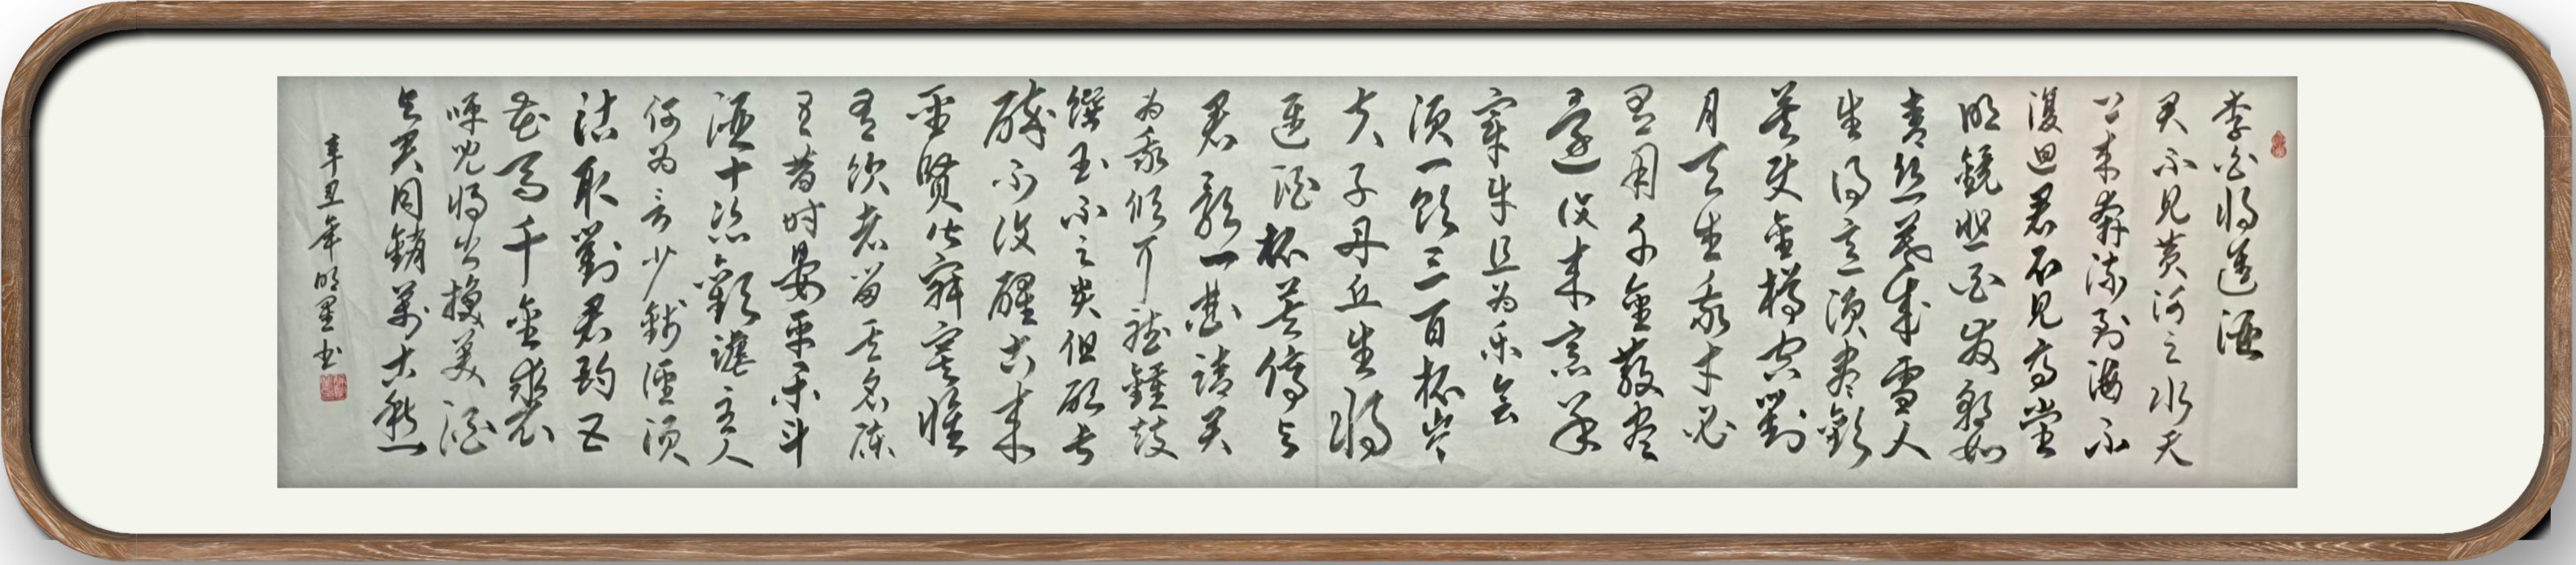 李白将进酒
君不见黄河之水天
上来奔流到海不
復迴君不見高堂
明鏡悲白发朝如
青丝暮成雪人
生得意須盡歡
莫使金樽空對
月天生我才必
有用千金散盡
還復来烹羊
宰牛且为乐会
須一飲三百杯岑
夫子丹丘生将
進酒杯莫停与
君歌一曲請君
为我倾耳聽鐘鼓
饌玉不足貴但願長
醉不復醒古来
圣賢皆寂寞惟
有飲者留其名陳
王昔時宴平乐斗
酒十千恣歡謔主人
何为言少錢徑須
沽取對君酌五
花馬千金裘
呼兒将出換美酒
与君同銷萬古愁
辛丑年明星书